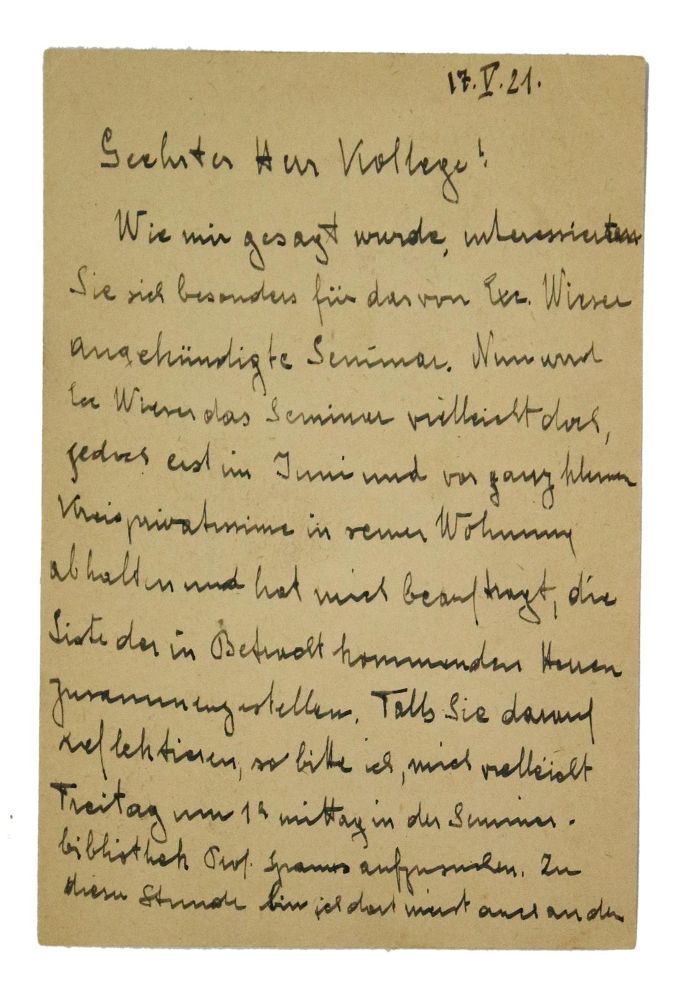 17.V.21.
Geehrter Herr Kollege!
Wie mir gesagt wurde, interessierten
Sie sich besonders für das von Exc. Wieser
angekündigte Seminar. Nun wird
Exc Wieser das Seminar vielleicht doch,
jedoch erst im Juni und vor ganz kleinem
Kreis privatissime in seiner Wohnung
abhalten und hat mich beauftragt, die
Liste der in Betracht kommenden Herren
zusammenzustellen. Falls Sie darauf
reflektieren, so bitte ich, mich vielleicht
Freitag um 1h mittag in der Seminar-
bibliothek Prof. aufzusuchen. Zu
dieser Stunde bin ich dort meist auch an den